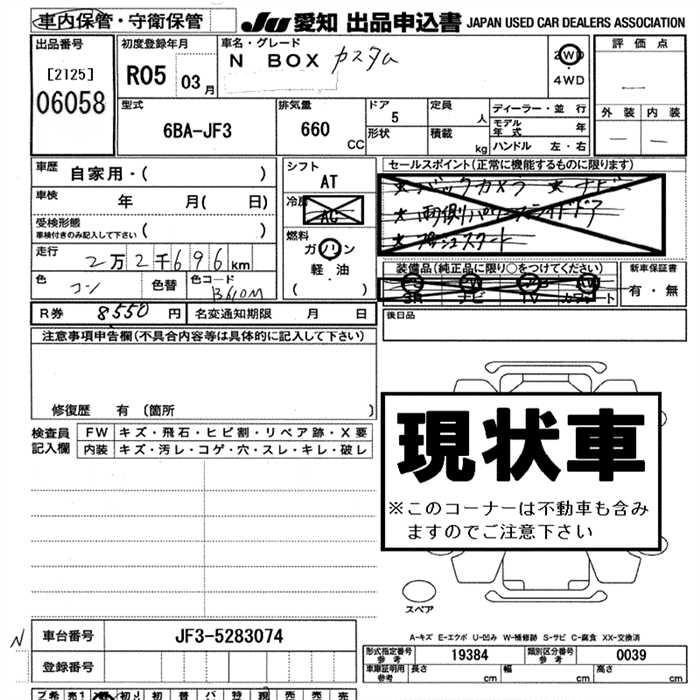 車内保管・守衛保管 JU 愛知 出品申込書 JAPAN USED CAR DEALERS ASSOCIATION
出品番号 初度登録年月 車名・グレード 評価点
[2125] R05 03月 N BOX カスタム 2WD
06058 4WD
外装 内装
型式 排気量 ドア 定員 ディーラー・並行
6BA-JF3 660 CC 5 人 モデル年式 年
形状 積載 kg ハンドル 左・右
車歴 自家用・( ) シフト セールスポイント(正常に機能するものに限ります)
AT ★バックカメラ ★ナビ
車検 年 月( 日) 冷房 AC ★両側パワースライドドア
受検形態 ★プッシュスタート
車検付きのみ記入して下さい ( ) 燃料
走行 2万2千696km ガソリン 装備品(純正品に限り○をつけてください) 新車保証書
軽油 SR ナビ TV 有・無
色 コン 色替 色コード B610M ( )
R券 8550円 名変通知期限 月 日 後日品
注意事項申告欄(不具合内容等は具体的に記入して下さい)
修復歴 有(箇所 )
検査員 FW キズ・飛石・ヒビ割・リペア跡・X要
記入欄 内装 キズ・汚レ・コゲ・穴・スレ・キレ・破レ
現状車
※このコーナーは不動車も含み
ますのでご注意下さい
スペア
A-キズ E-エクボ U-凹み W-補修跡 S-サビ C-腐食 XX-交換済
N 車台番号 JF3-5283074
型式指定番号 参考 19384 類別区分番号 参考 0039
登録番号 車庫証明用 参考 長さ cm 幅 cm 高さ cm